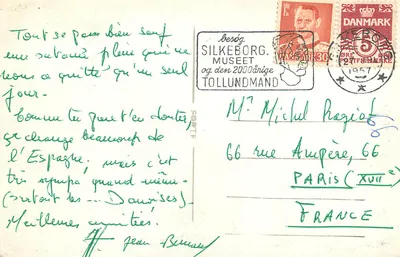 Tout se passe bien sauf
une satanée pluie qui ne
nous a quitté qu'un seul
jour.
Comme tu peux t'en douter,
ça change beaucoup de
l'Espagne, mais c'est
très sympa quand même
(surtout les ... Danoises)
Meilleures amitiés.
Jean
besøg
SILKEBORG
MUSEET
og den 2000årige
TOLLUNDMAND
30
DANMARK
5
ØRE
1957
Mr Michel
66 rue Ampère, 66
PARIS (XVIIe)
FRANCE